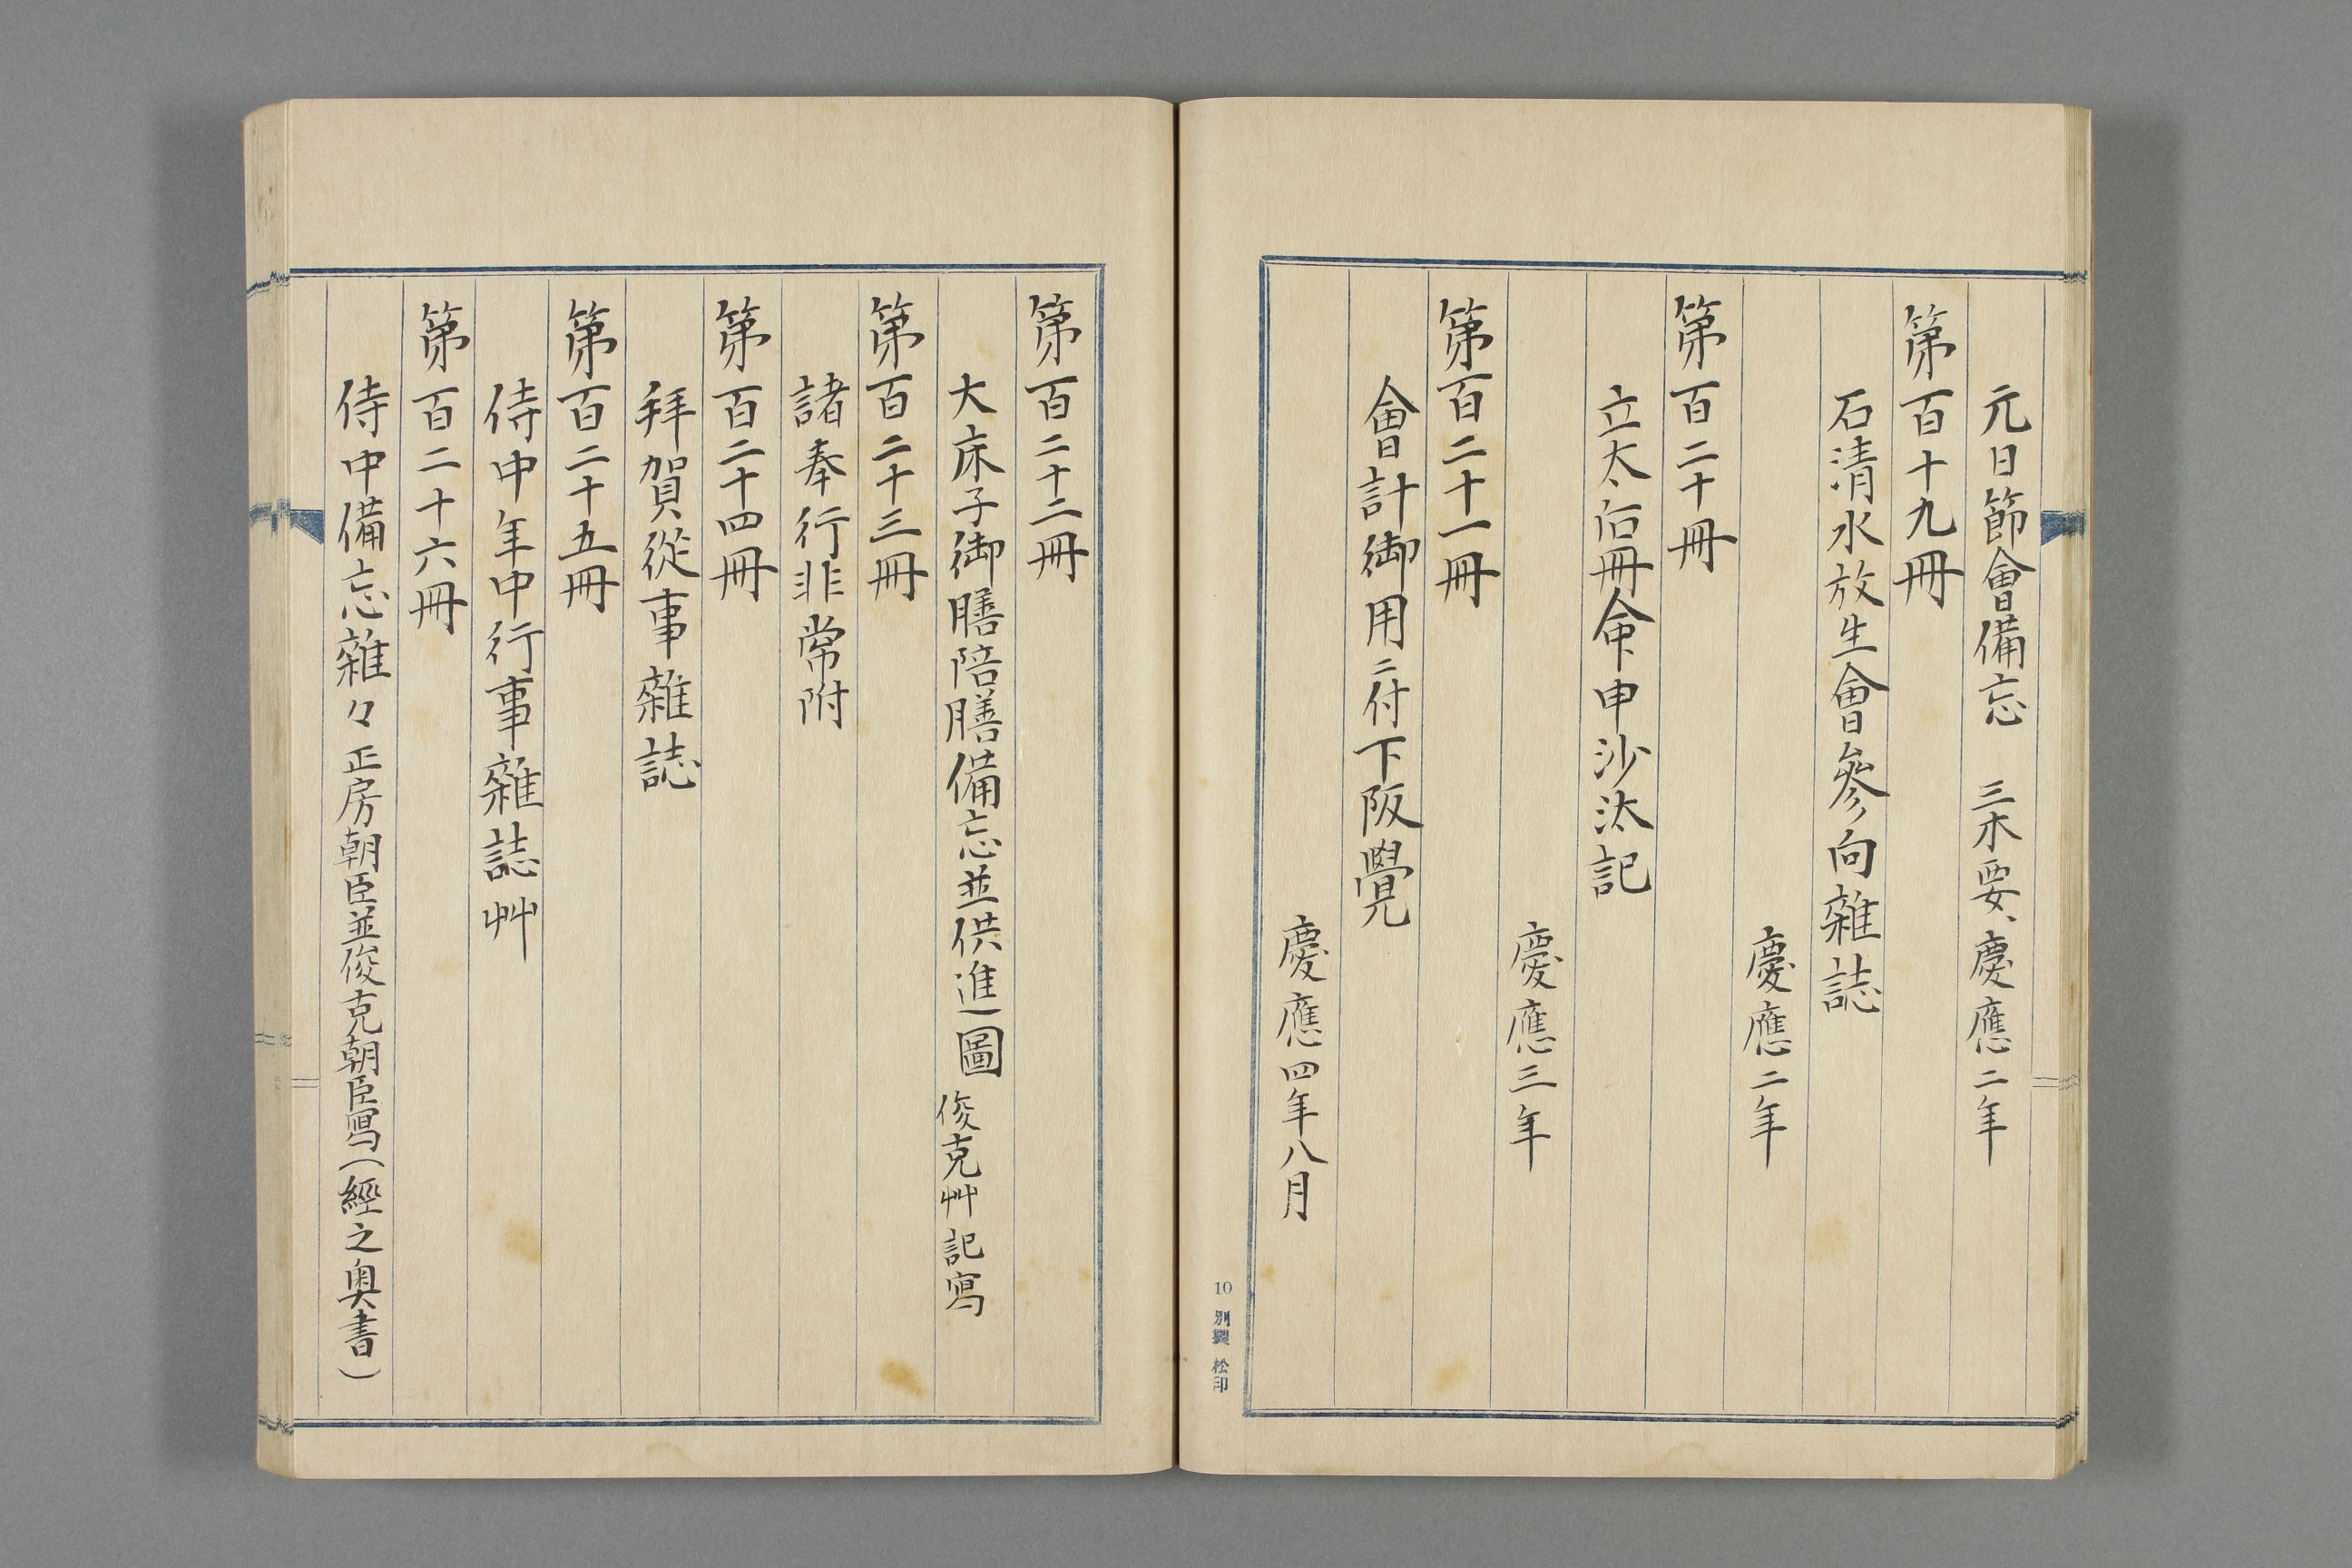 元日節會備忘　三木要、慶應二年
第百十九冊
石清水放生會參向雜誌
慶應二年
第百二十冊
立太后冊命申沙汰記
慶應三年
第百二十一冊
會計御用ニ付下阪覺
慶應四年八月
10 別製 松印
第百二十二冊
大床子御膳陪膳備忘並供進一圖 俊克艸記寫
第百二十三冊
諸奉行非常附
第百二十四冊
拜賀從事雜誌
第百二十五冊
侍中年中行事雜誌艸
第百二十六冊
侍中備忘雜々 正房朝臣並俊克朝臣寫(經之奥書)